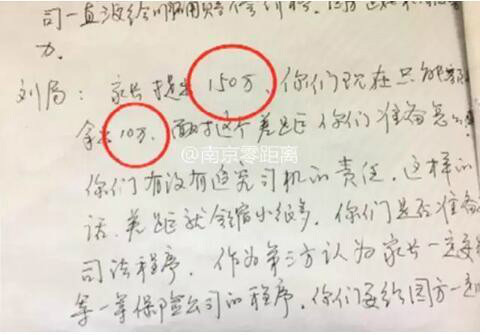 司一直没给
力.
刘局: 家长提出 150万, 你们现在只能
拿出 10万. 面对这个差距你们准备怎么
@南京零距离
你们有没有追究司机的责任. 这样的
话. 差距就会缩小很多. 你们是否准备
司法程序. 作为第三方认为家长一定要
等一等保险公司的程序. 你们要给图方一